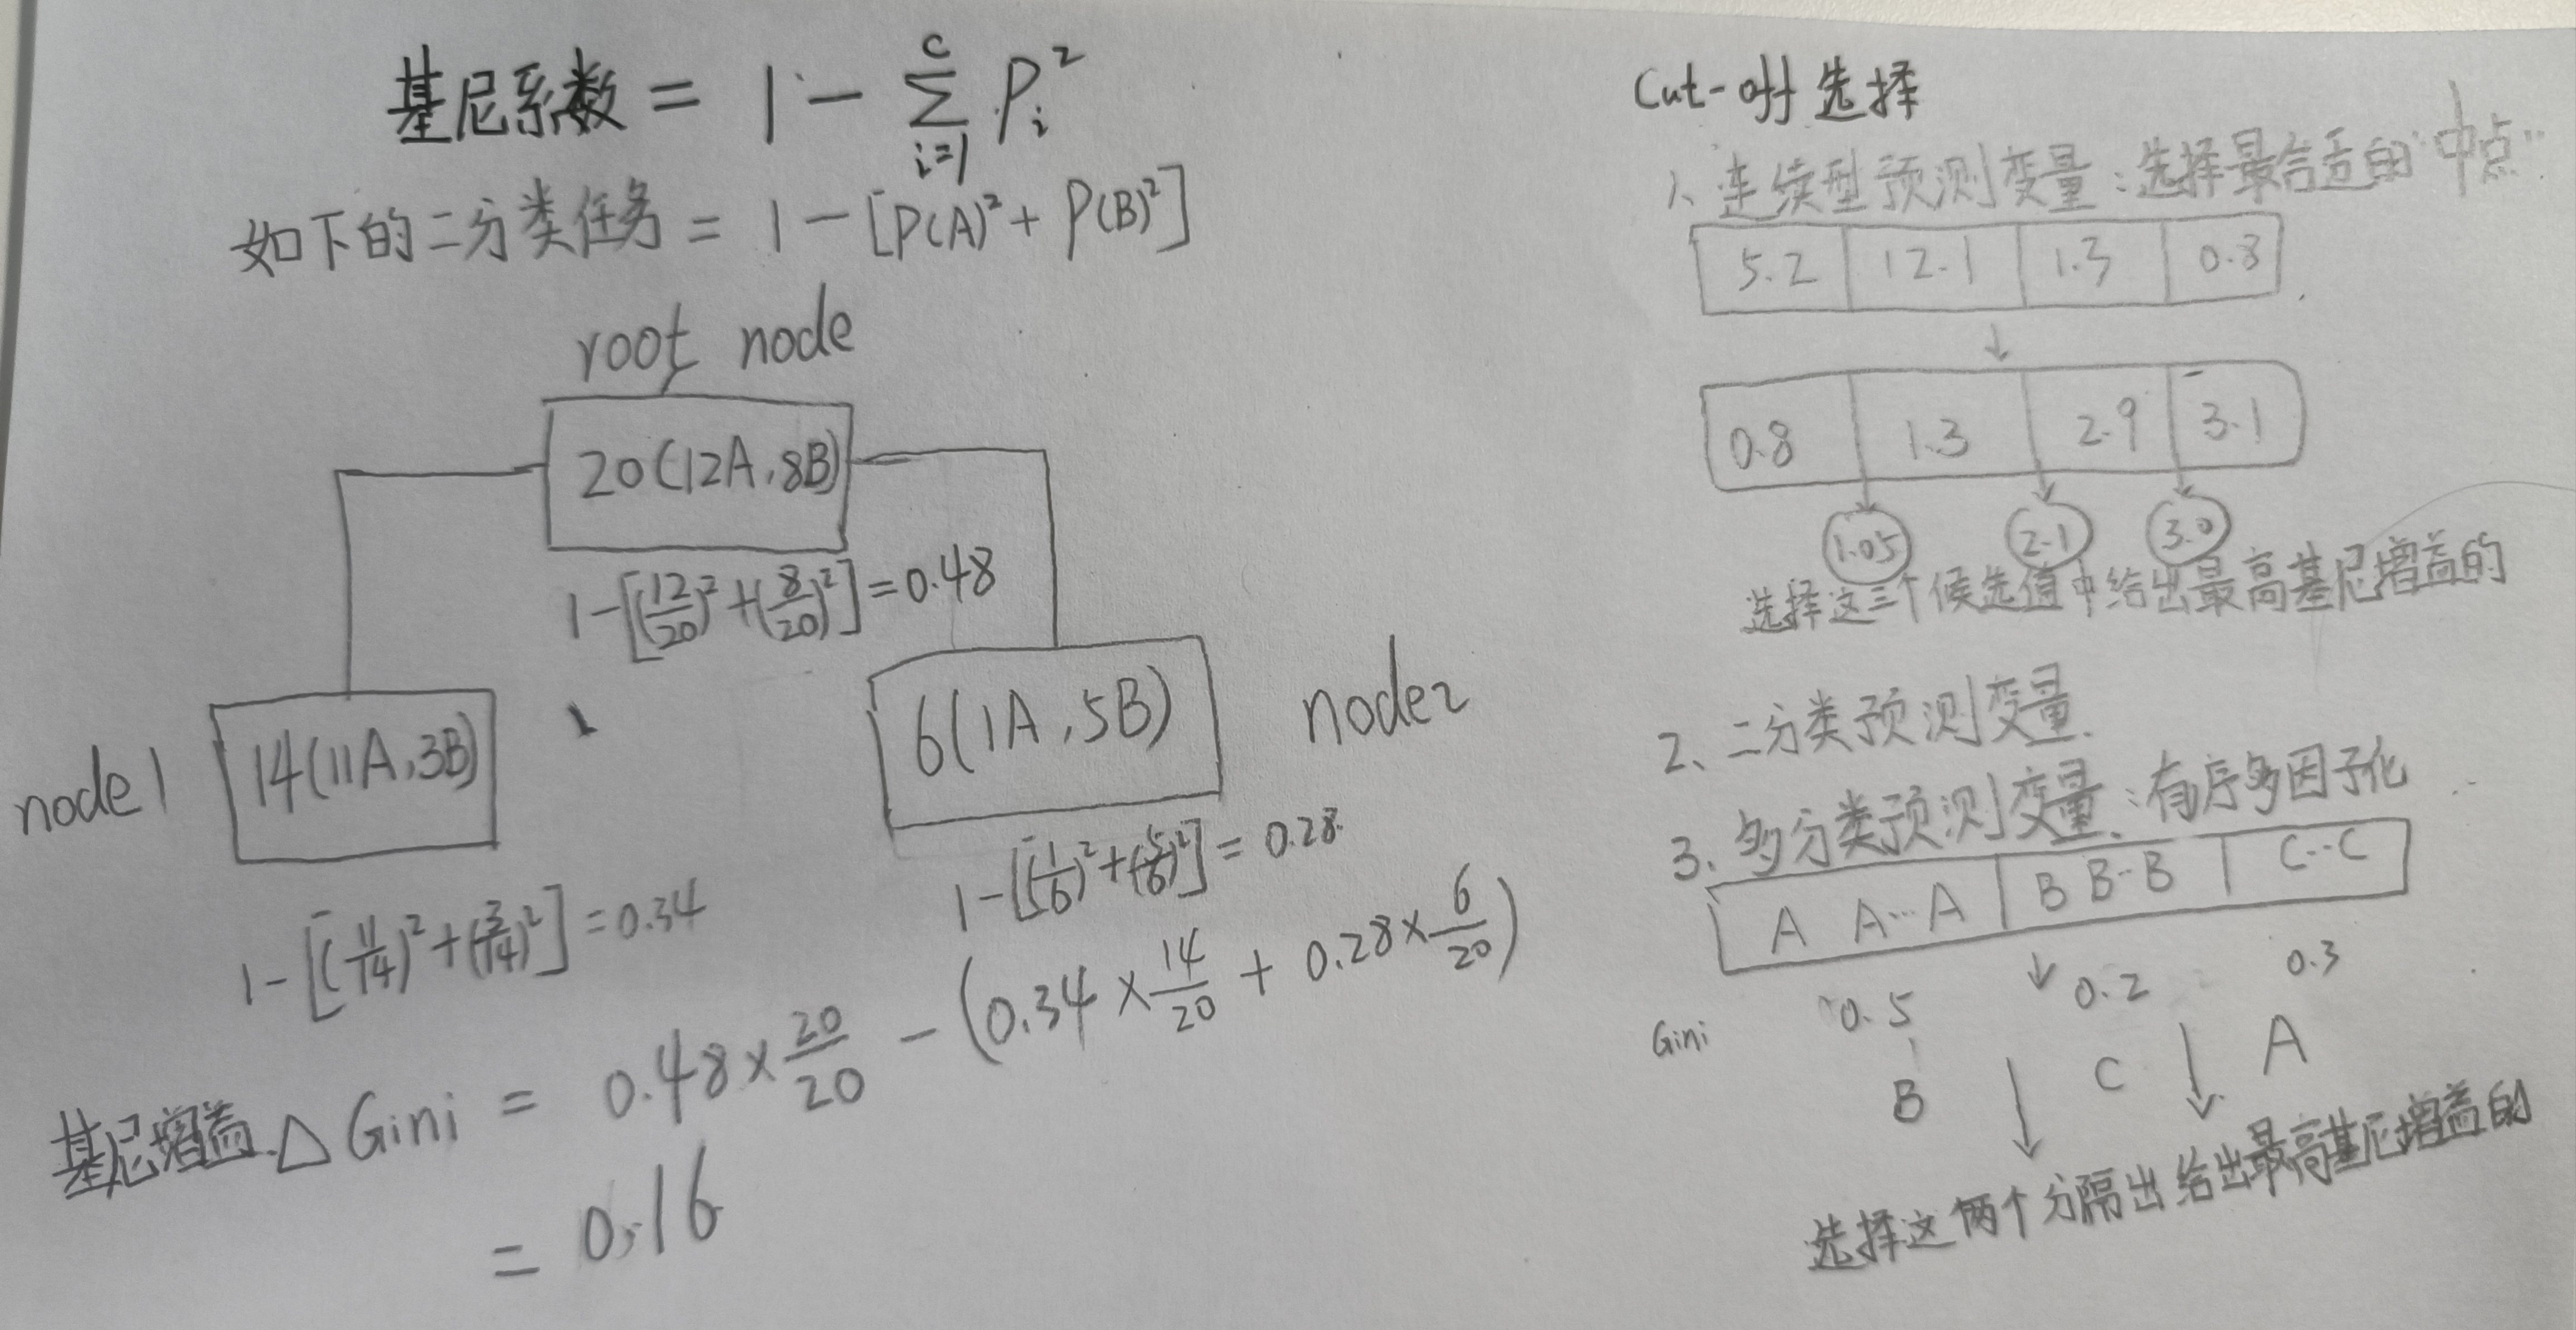 基尼系数 = 1 - ∑ᵢ₌₁ᶜ Pᵢ²
如下的二分类任务 = 1 - [P(A)² + P(B)²]
root node
20(12A,8B)
1-[(12/20)²+(8/20)²]=0.48
node1
14(11A,3B)
6(1A,5B)
node2
1-[(11/14)²+(3/14)²]=0.34
1-[(1/6)²+(5/6)²]=0.28
基尼增益 △Gini = 0.48×20/20 - (0.34×14/20 + 0.28×6/20)
= 0.16
Cut-off 选择
1、连续型预测变量:选择最合适的"中点"
5.2 12.1 1.3 0.8
0.8 1.3 2.9 3.1
1.05 2.1 3.0
选择这三个候选值中给出最高基尼增益的
2、二分类预测变量.
3、多分类预测变量:有序多因子化
A A...A B B..B C...C
Gini 0.5 0.2 0.3
B C A
选择这两个分隔出给出最高基尼增益的